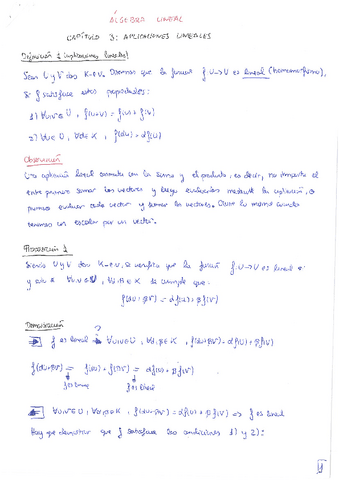 ÁLGEBRA LINEAL
CAPÍTULO 3: APLICACIONES LINEALES
Definición 1 (aplicaciones lineales)
Sean U y V dos K-e.v. Diremos que la función f: U→V es lineal (homomorfismo),
si f satisface estas propiedades:
1) ∀u,v∈U, f(u+v) = f(u)+f(v)
2) ∀u∈U, ∀α∈K, f(αu) = αf(u)
Observación
Una aplicación lineal conmuta con la suma y el producto, es decir, no importa el
entre primero sumar los vectores y luego evaluarlos mediante la aplicación, o
primero evaluar cada vector y sumar los vectores. Ocurre lo mismo cuando
tenemos un escalar por un vector.
Proposición 1
Siendo U y V dos K-e.v, se verifica que la función f: U→V es lineal si
y sólo si ∀u,v∈U, ∀α,β∈K se cumple que:
f(αu+βv) = αf(u)+βf(v)
Demostración
⇒ f es lineal ⇒ ∀u,v∈U, ∀α,β∈K, f(αu+βv) = αf(u)+βf(v)
f(αu+βv) = f(αu)+f(βv) = αf(u)+βf(v)
f es lineal f es lineal
⇐ ∀u,v∈U, ∀α,β∈K, f(αu+βv) = αf(u)+βf(v) ⇒ f es lineal
Hay que demostrar que f satisface las condiciones 1) y 2):
1